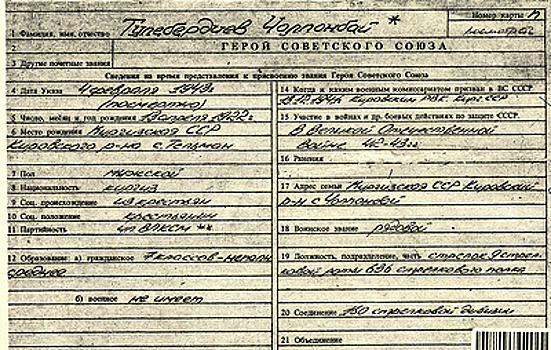 Номер карты
1 Фамилия, имя, отчество Тулебердиев Чолпонбай *
2 ГЕРОЙ СОВЕТСКОГО СОЮЗА
3 Другие почетные звания
Сведения на время представления к присвоению звания Героя Советского Союза
4 Дата Указа 4 февраля 1943г
(посмертно)
5 Число, месяц и год рождения 13 апреля 1922г
6 Место рождения Киргизская ССР
Кировского р-на с. Тельман
7 Пол мужской
8 Национальность киргиз
9 Соц. происхождение из крестьян
10 Соц. положение крестьянин
11 Партийность чл ВЛКСМ **
12 Образование: а) гражданское 7 классов - неполн
среднее
б) военное не имеет
14 Когда и каким военным комиссариатом призван в ВС СССР
Кировским РВК Кирг. ССР
15 Участие в войнах и др. боевых действиях по защите СССР
В Великой Отечественной
Войне 42-43гг.
16 Ранения
17 Адрес семьи Киргизская ССР Кировский
р-н с Чолпонбай
18 Воинское звание рядовой
19 Должность, подразделение, часть стрелок 9 стрел-
ковой роты 636 стрелкового полка
20 Соединение 160 стрелковой дивизии
21 Объединение